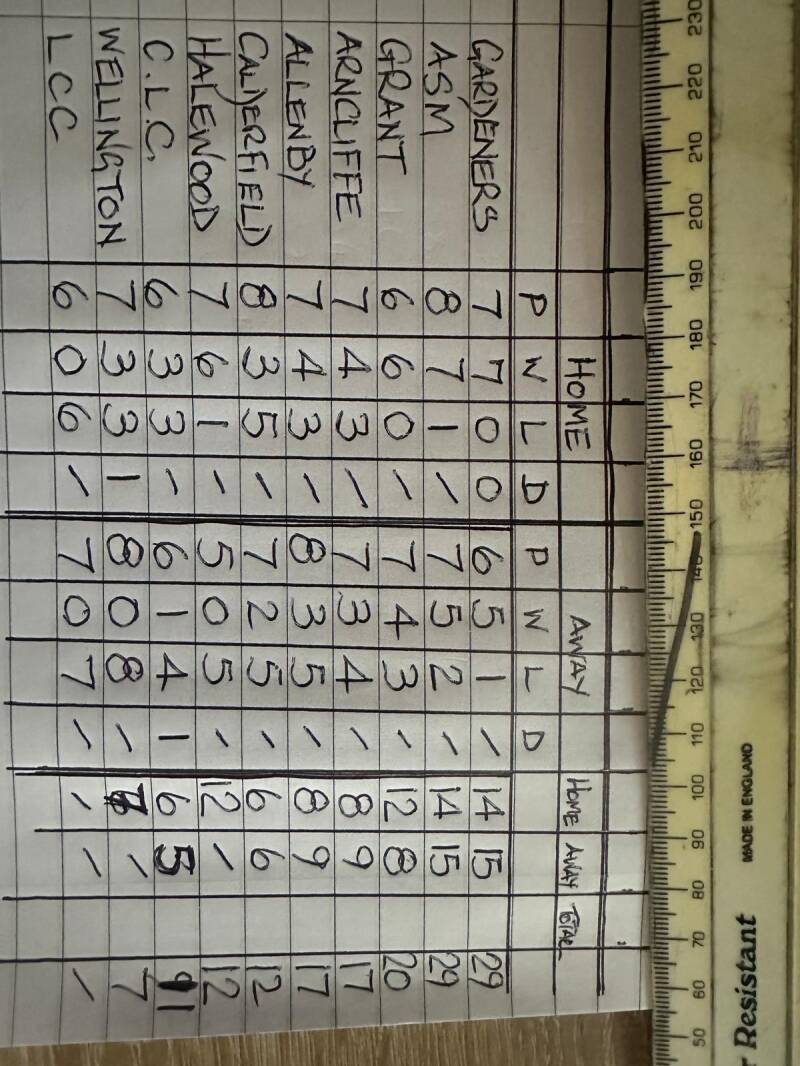 r Resistant
MADE IN ENGLAND
230 220 210 200 190 180 170 160 150 140 130 120 110 100 90 80 70 60 50
HOME AWAY HOME AWAY TOTAL
P W L D P W L D
GARDENERS 7 7 0 0 6 5 1 / 14 15 29
ASM 8 7 1 / 7 5 2 / 14 15 29
GRANT 6 6 0 / 7 4 3 / 12 8 20
ARNCLIFFE 7 4 3 / 7 3 4 / 8 9 17
ALLENBY 7 4 3 / 8 3 5 / 8 9 17
CALDERFIELD 8 3 5 / 7 2 5 / 6 6 12
HALEWOOD 7 6 1 / 5 0 5 / 12 / 12
C.L.C. 6 3 3 / 6 1 4 1 6 5 11
WELLINGTON 7 3 3 1 8 0 8 / 7 / 7
LCC 6 0 6 / 7 0 7 / / / /